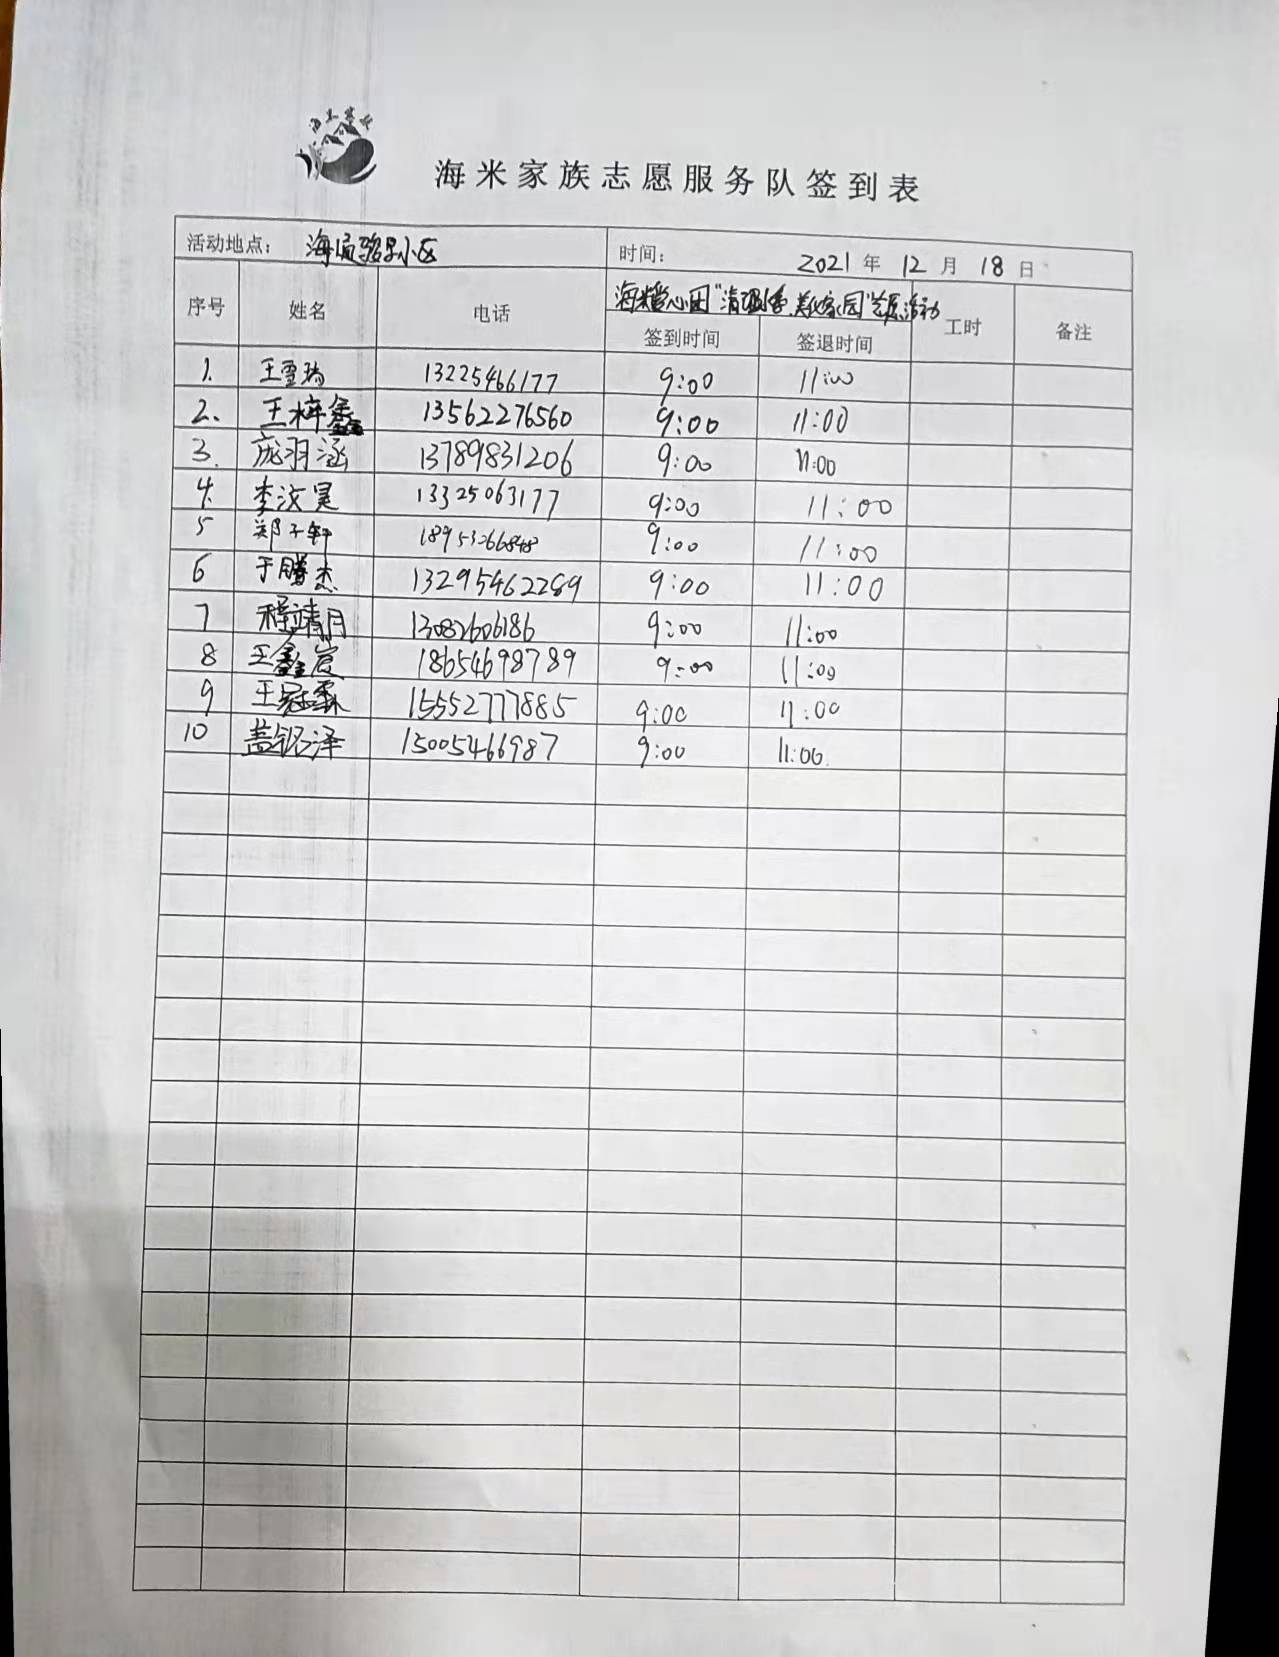 海米家族志愿服务队签到表
活动地点: 海 小区 时间: 2021 年 12 月 18 日
序号 姓名 电话 工时 备注
签到时间 签退时间
1. 王雪瑞 13225466177 9:00 11:00
2. 王梓鑫 13562276560 9:00 11:00
3. 庞羽涵 13789831206 9:00 11:00
4. 李汶昊 13325063177 9:00 11:00
5 郑子轩 9:00 11:00
6 于腾杰 13295462289 9:00 11:00
7 程靖月 13082606186 9:00 11:00
8 王鑫宸 18654698789 9:00 11:00
9 王冠霖 15552777885 9:00 11:00
10 盖铭泽 15005466987 9:00 11:00